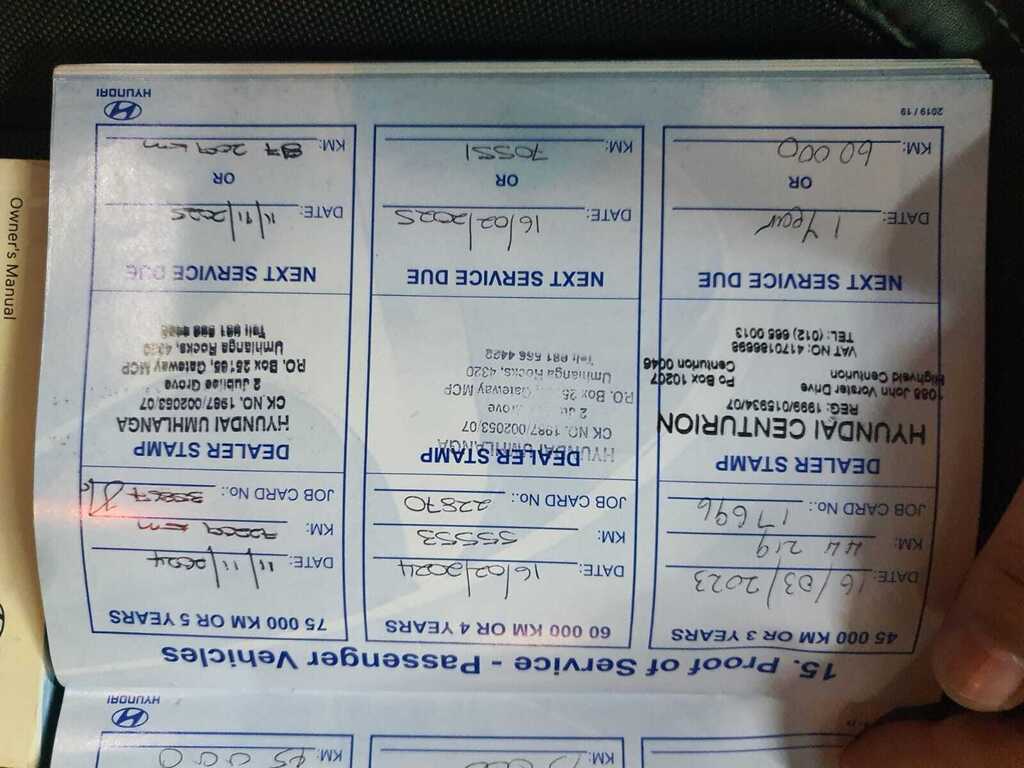 Owner's Manual
15. Proof of Service - Passenger Vehicles
45 000 KM OR 3 YEARS
DATE: 16/03/2023
KM: 44 219
JOB CARD No.: 17696
DEALER STAMP
HYUNDAI CENTURION
REG: 1999/015934/07
1088 John Vorster Drive
Highveld Centurion
Po Box 10207
Centurion 0046
VAT NO: 4170186698
TEL: (012) 665 0013
NEXT SERVICE DUE
DATE: 1 Year
OR
KM: 60 000
60 000 KM OR 4 YEARS
DATE: 16/02/2024
KM: 55553
JOB CARD No.: 22870
DEALER STAMP
HYUNDAI UMHLANGA
CK NO. 1987/002053/07
P.O. Box 25 Gateway MCP
Umhlanga Rocks, 4320
Tel: 031 566 4422
NEXT SERVICE DUE
DATE: 16/02/2025
OR
KM: 70551
75 000 KM OR 5 YEARS
DATE: 11/11/2024
KM: 72209 km
JOB CARD No.:
DEALER STAMP
HYUNDAI UMHLANGA
CK NO. 1987/002053/07
2 Jubilee Grove
P.O. Box 25185, Gateway MCP
Umhlanga Rocks, 4320
NEXT SERVICE DUE
DATE: 11/11/2025
OR
KM: 87 209 km
2019 / 19
HYUNDAI
HYUNDAI
KM:
KM:
KM: 45 000